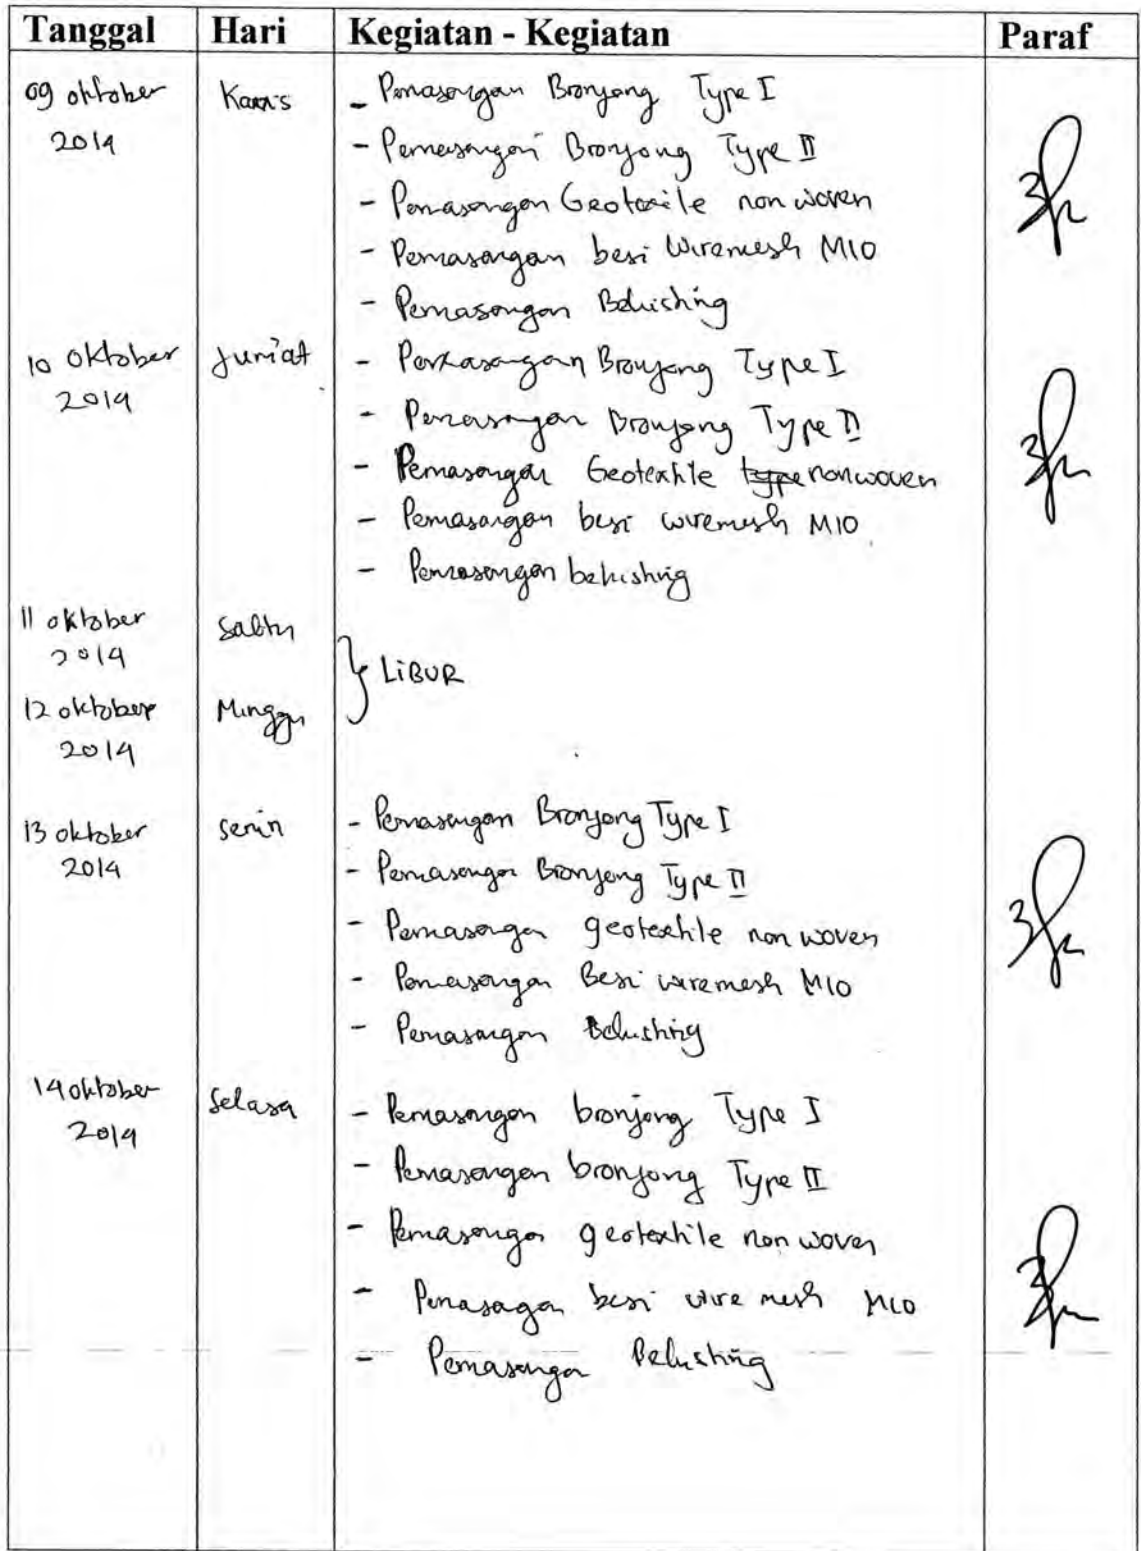 Tanggal Hari Kegiatan - Kegiatan Paraf
09 oktober Kamis - Pemasangan Bronjong Type I
2014 - Pemasangan Bronjong Type II
- Pemasangan Geotextile non woven
- Pemasangan besi Wiremesh M10
- Pemasangan Bekisting
10 oktober Jum'at - Pemasangan Bronjong Type I
2014 - Pemasangan Bronjong Type II
- Pemasangan Geotextile type nonwoven
- Pemasangan besi wiremesh M10
- Pemasangan bekisting
11 oktober Sabtu
2014
} LIBUR
12 oktober Minggu
2014
13 oktober Senin - Pemasangan Bronjong Type I
2014 - Pemasangan Bronjong Type II
- Pemasangan geotextile non woven
- Pemasangan Besi wiremesh M10
- Pemasangan Bekisting
14 oktober Selasa - Pemasangan bronjong Type I
2014 - Pemasangan bronjong Type II
- Pemasangan geotextile non woven
- Pemasagan besi wire mesh M10
- Pemasangan Bekisting